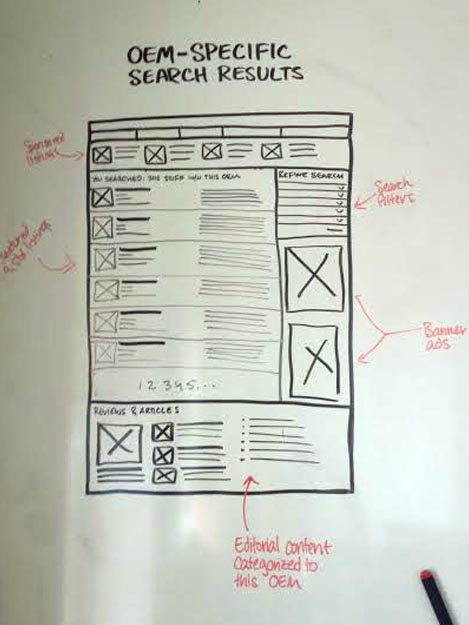 OEM-SPECIFIC
SEARCH RESULTS
Sponsored
listings
SEARCHED: THIS STUFF THIS OEM
REFINE SEARCH
Search
filters
12345...
Banner
ads
REVIEWS & ARTICLES
Editorial content
Categorized to
this OEM